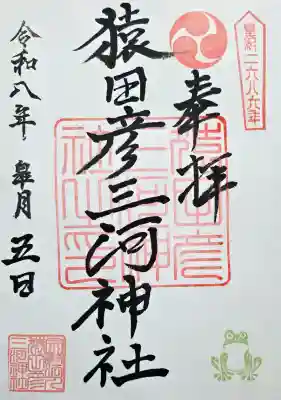 皇紀二六八六年
奉拝
猿田彦三河神社
令和八年 皐月 五日